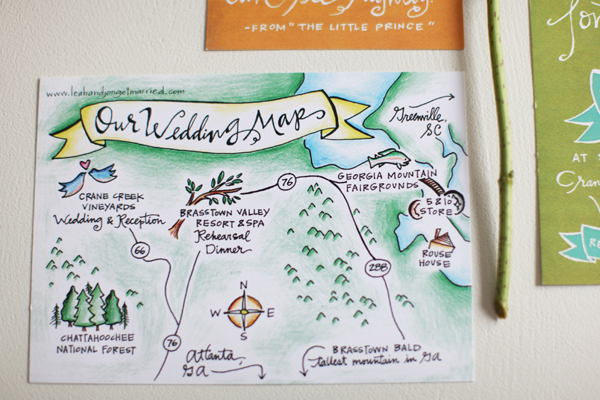 -FROM "THE LITTLE PRINCE"
www.leahandjongetmarried.com
Our Wedding Map
Greenville,
SC
CRANE CREEK
VINEYARDS
Wedding & Reception
BRASSTOWN VALLEY
RESORT & SPA
Rehearsal
Dinner
76
GEORGIA MOUNTAIN
FAIRGROUNDS
5 & 10
STORE
ROUSE
HOUSE
66
288
CHATTAHOOCHEE
NATIONAL FOREST
N
W E
S
76
Atlanta,
GA
BRASSTOWN BALD
tallest mountain in GA
AT